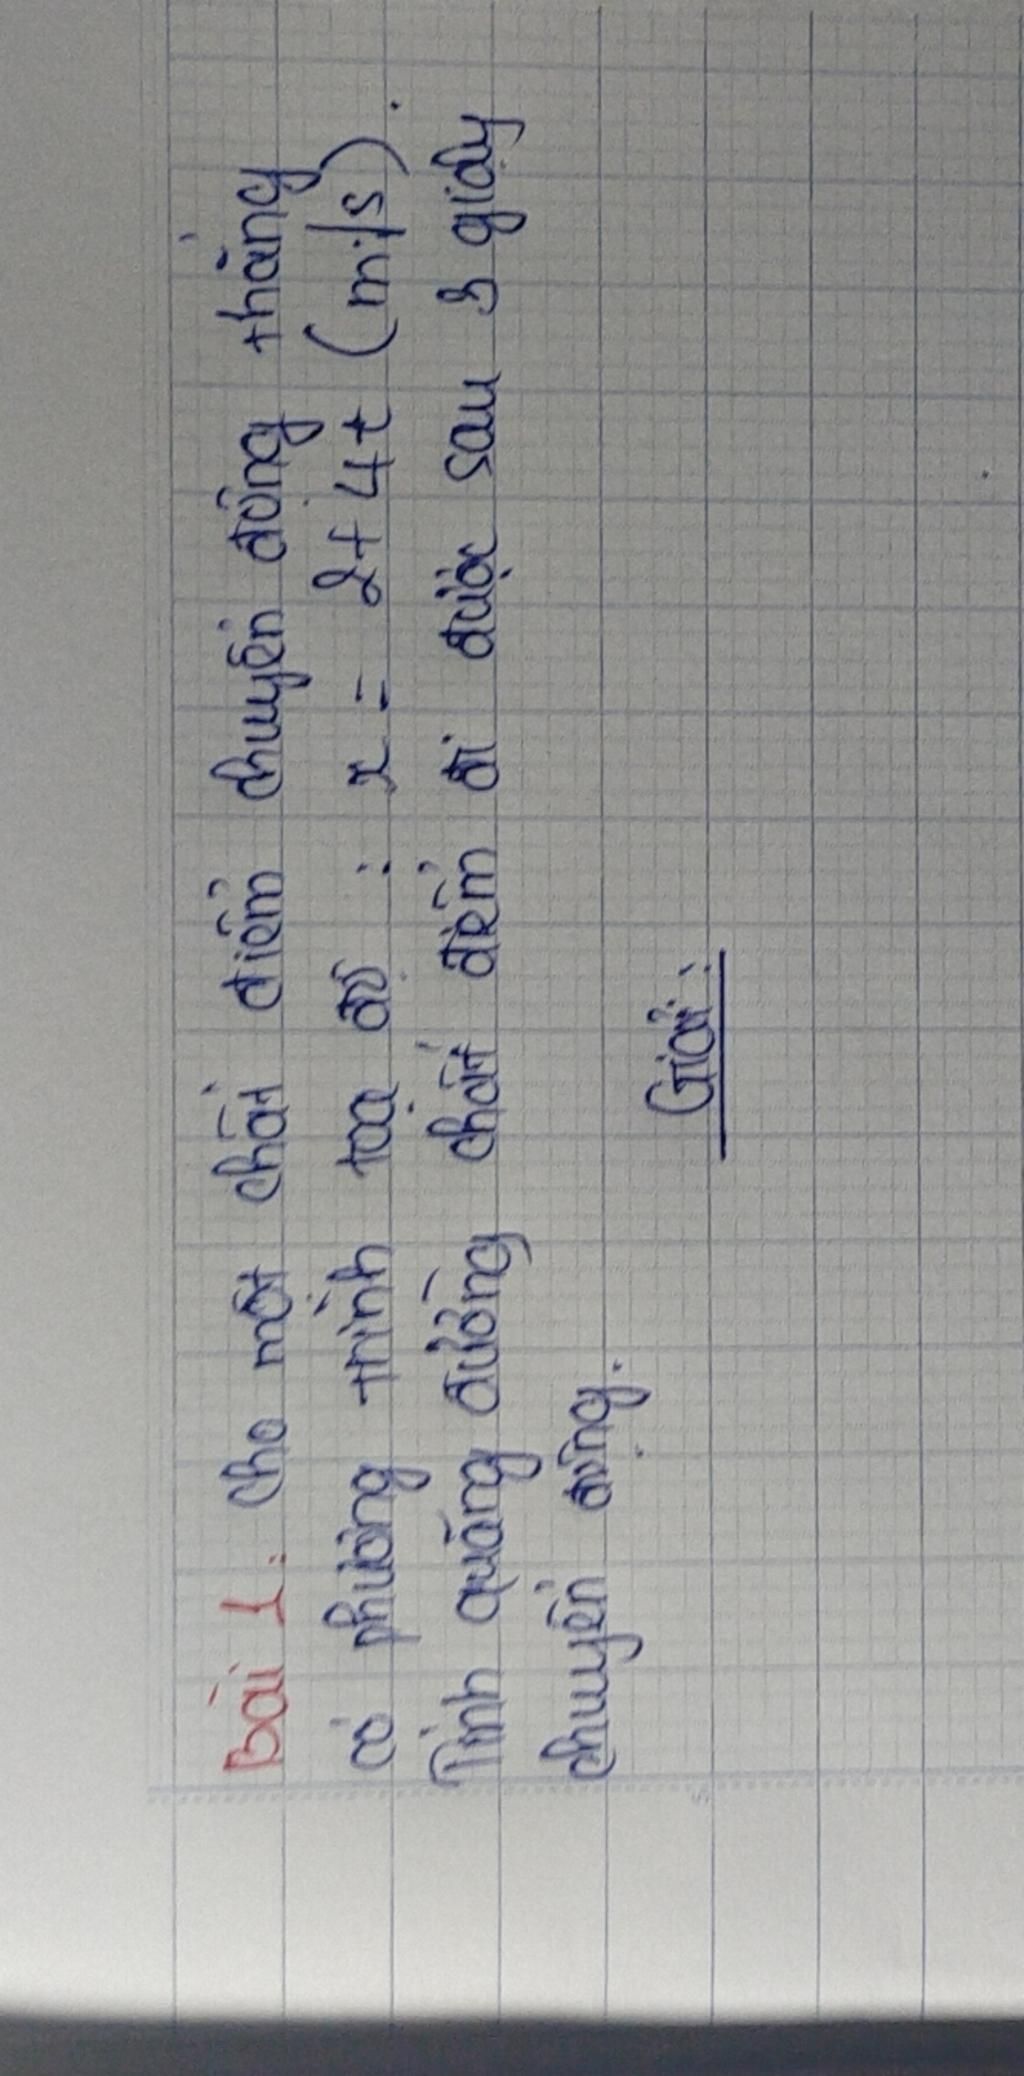 Bài 1: Cho một chất điểm chuyển động thẳng
có phương trình toạ độ : x = 2+4t (m/s).
Tính quãng đường chất điểm đi được sau 3 giây
chuyển động.
Giải: